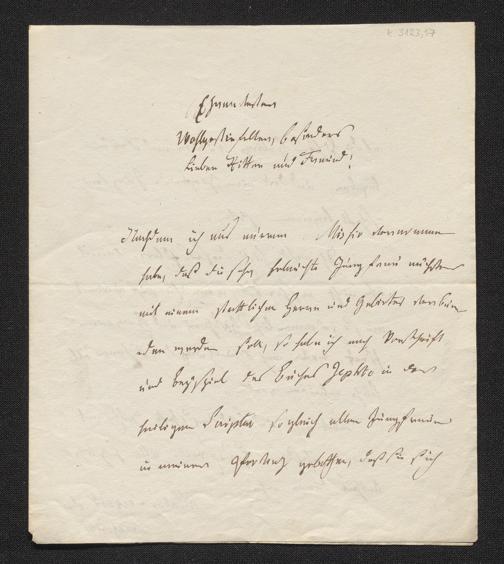 K 3123,57
Ehrenvesten
Wohlgestrengen, besonders
lieber Ritter und Freund!
Nachdem ich aus meinem Missiv vernommen
habe, daß die sehr erlauchte Jungfrau nächstens
mit einem stattlichen Herrn und Gebieter verbun-
den werden soll, so habe ich nach Vorschrift
und Beispiel des Buches Jephta in der
heiligen Scriptur sogleich allen Jungfrauen
in meinem geboten, daß sie sich